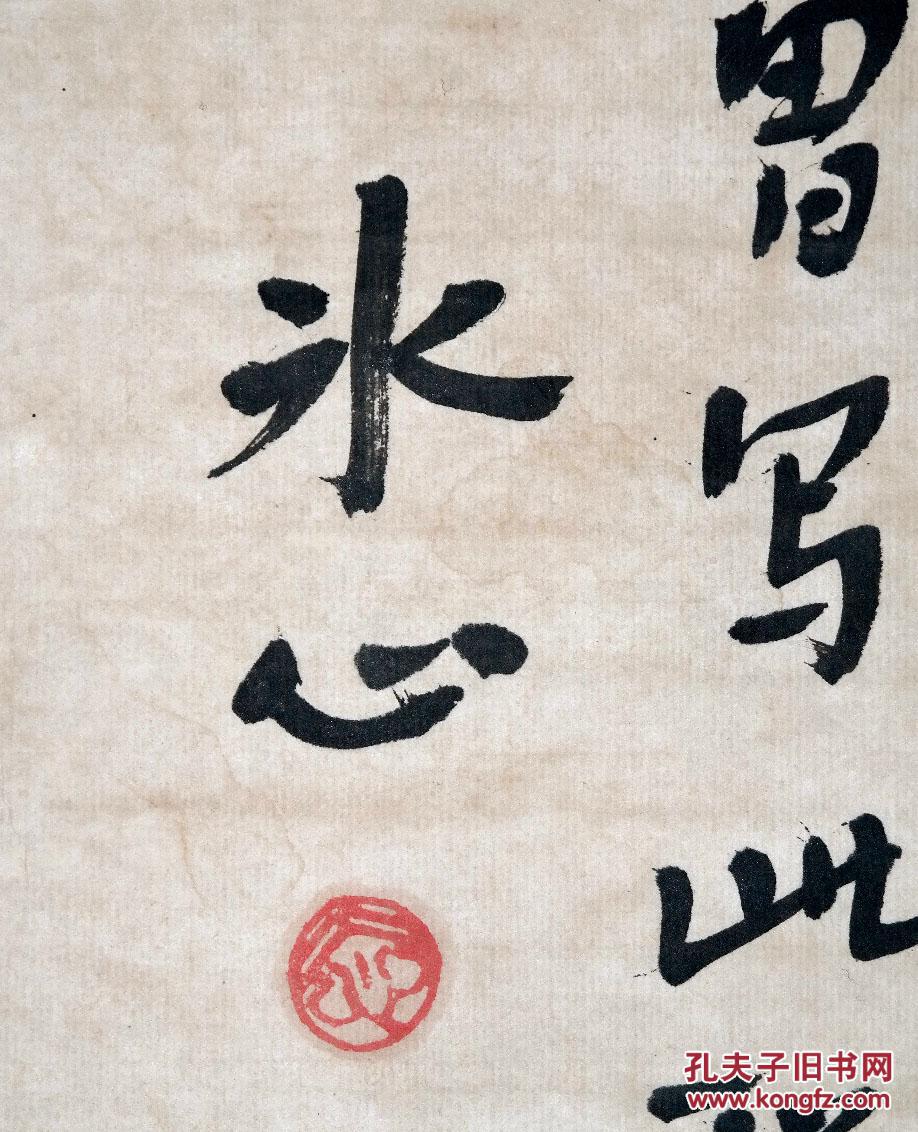 冒写此
冰心
孔夫子旧书网
www.kongfz.com